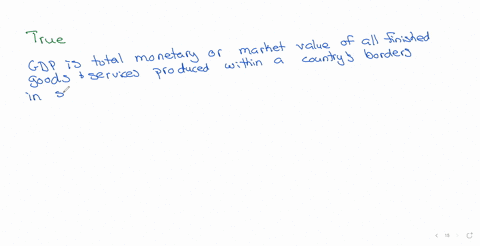 True
GDP is total monetary or market value of all finished
goods + services produced within a country's borders
in s